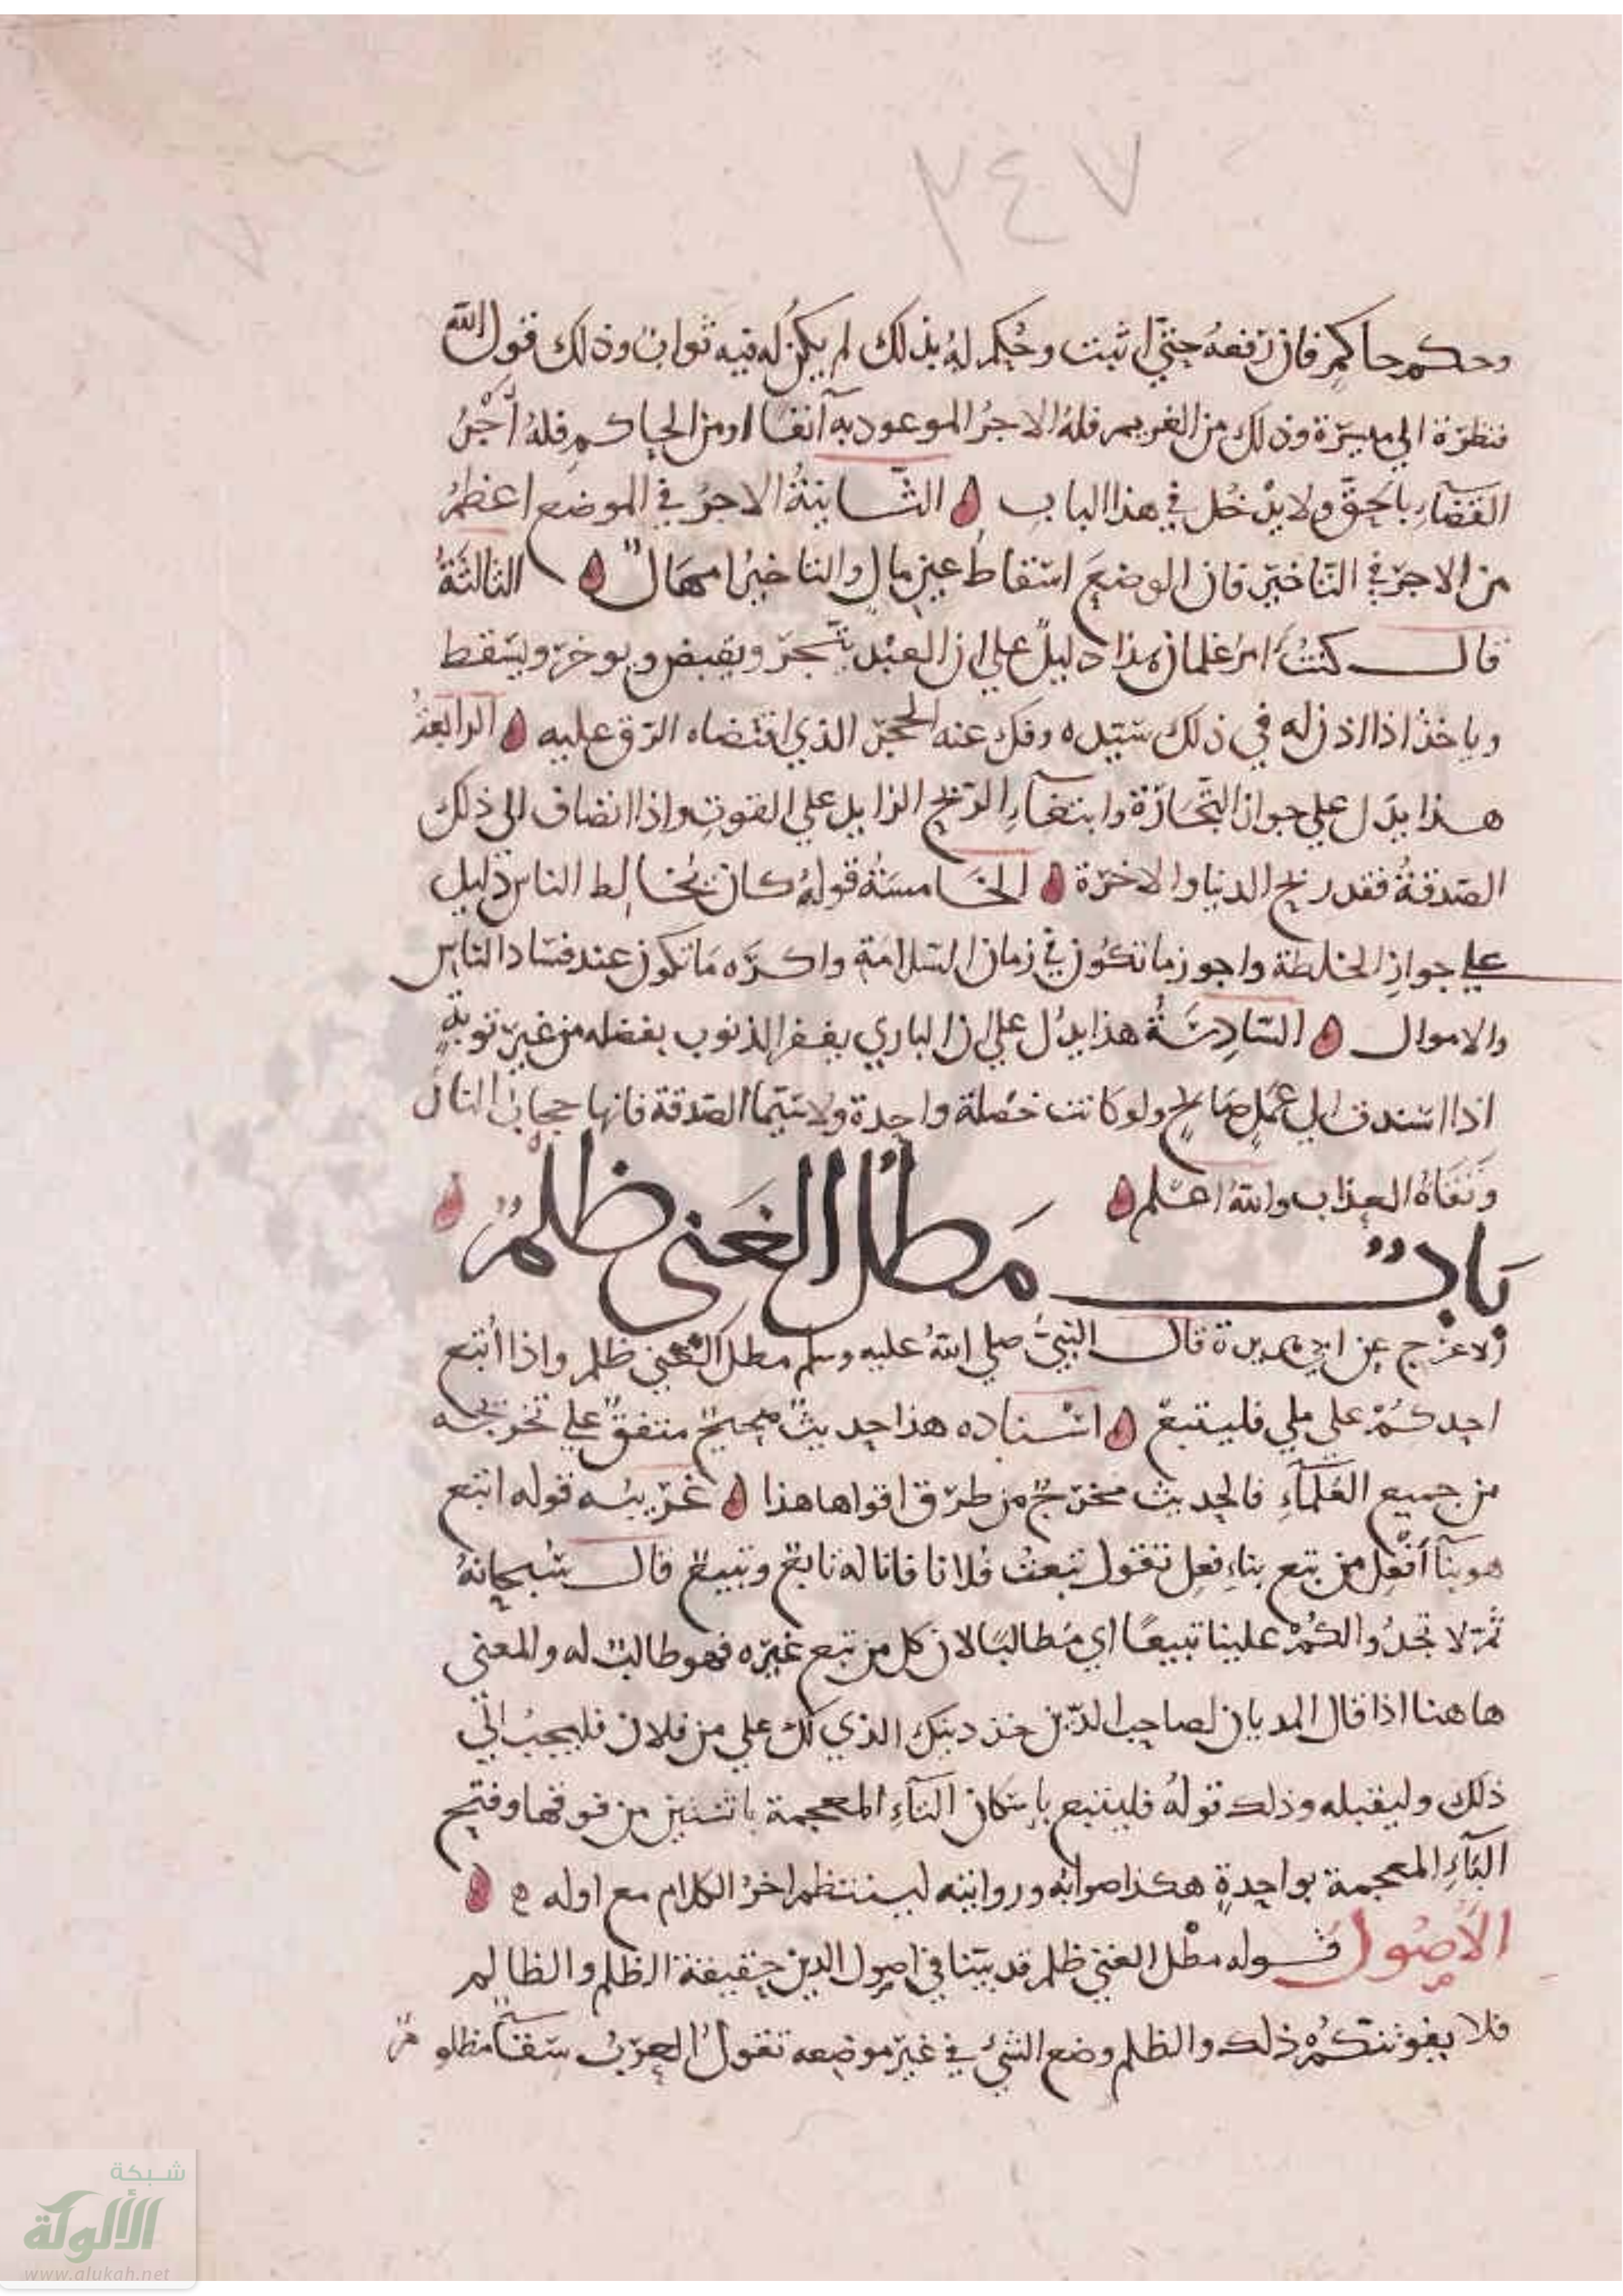 ٢٤٧
وحكم حاكم فان رفعه حتى اثبت وحكم له بذلك لم يكن له فيه ثواب وذلك قول الله
فنظرة الى ميسرة وذلك من الغريم فله الاجر الموعود به آنفا او من الحاكم فله أجر
القضاء بالحق ولا يدخل في هذا الباب الثانية الاجر في الموضع اعظم
من الاجر في التاخير فان الوضع اسقاط عين مال والتاخير امهال الثالثة
قال كنت امر غلمان هذا دليل على ان العبد يتجر ويقبض ويوخر ويسقط
وياخذ اذا اذن له في ذلك سيده وفك عنه الحجر الذي اقتضاه الرق عليه الرابعة
هذا يدل على جواز التجارة وابتغاء الربح الزايد على القوت واذا انضاف الى ذلك
الصدقة فقد ربح الدنيا والاخرة الخامسة قوله كان يخالط الناس دليل
على جواز الخلطة واجوز ما تكون في زمان السلامة واكره ما تكون عند فساد الناس
والاموال السادسة هذا يدل على ان الباري يغفر الذنوب بفضله من غير توبة
اذا استندت الى عمل صالح ولو كانت خصلة واحدة ولا سيما الصدقة فانها حجاب النار
ونقاة العذاب والله اعلم
باب مطل الغنى ظلم
الاعرج عن ابي هريرة قال النبي صلى الله عليه وسلم مطل الغني ظلم واذا أتبع
احدكم على ملي فليتبع اسناده هذا حديث صحيح متفق على تخريجه
من جميع العلماء فالحديث مخرج من طرق اقواها هذا غريبه قوله اتبع
هو بنآ أفعل من تبع بناء فعل تقول تبعت فلانا فانا له تابع وتبيع قال سبحانه
ثم لا تجدوا لكم علينا تبيعا اي مطالبا لان كل من تبع غيره فهو طالب له والمعنى
هاهنا اذا قال المديان لصاحب الدين خذ دينك الذي لك علي من فلان فليجب الى
ذلك وليقبله وذلك قوله فليتبع باسكان التآء المعجمة باثنتين من فوقها وفتح
البآء المعجمة بواحدة هكذا صوابه وروايته لينتظم اخر الكلام مع اوله ه
الأصول قوله مطل الغني ظلم قد بينا في اصول الدين حقيقة الظلم والظالم
فلا يفوتنكم ذلك والظلم وضع الشئ في غير موضعه تقول العرب سقآ مظلوم
شبكة
الألوكة
www.alukah.net